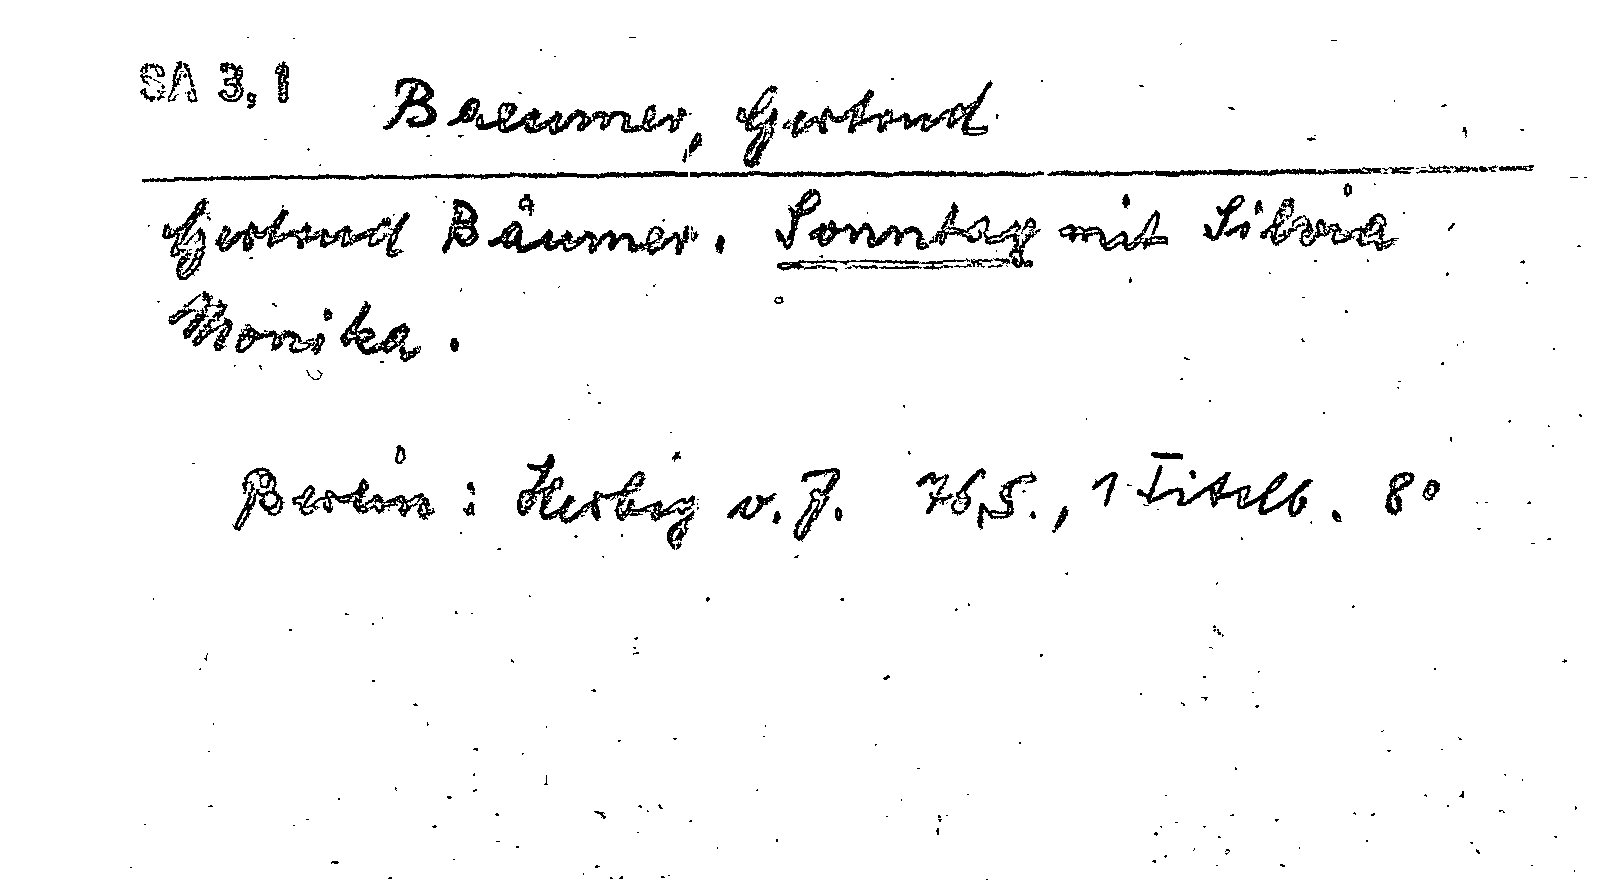 SA 3,1 Baeumer, Gertrud
Gertrud Bäumer. Sonntag mit Silvia
Monika.
Berlin: Herbig o. J. 76 S., 1 Titelb. 8°